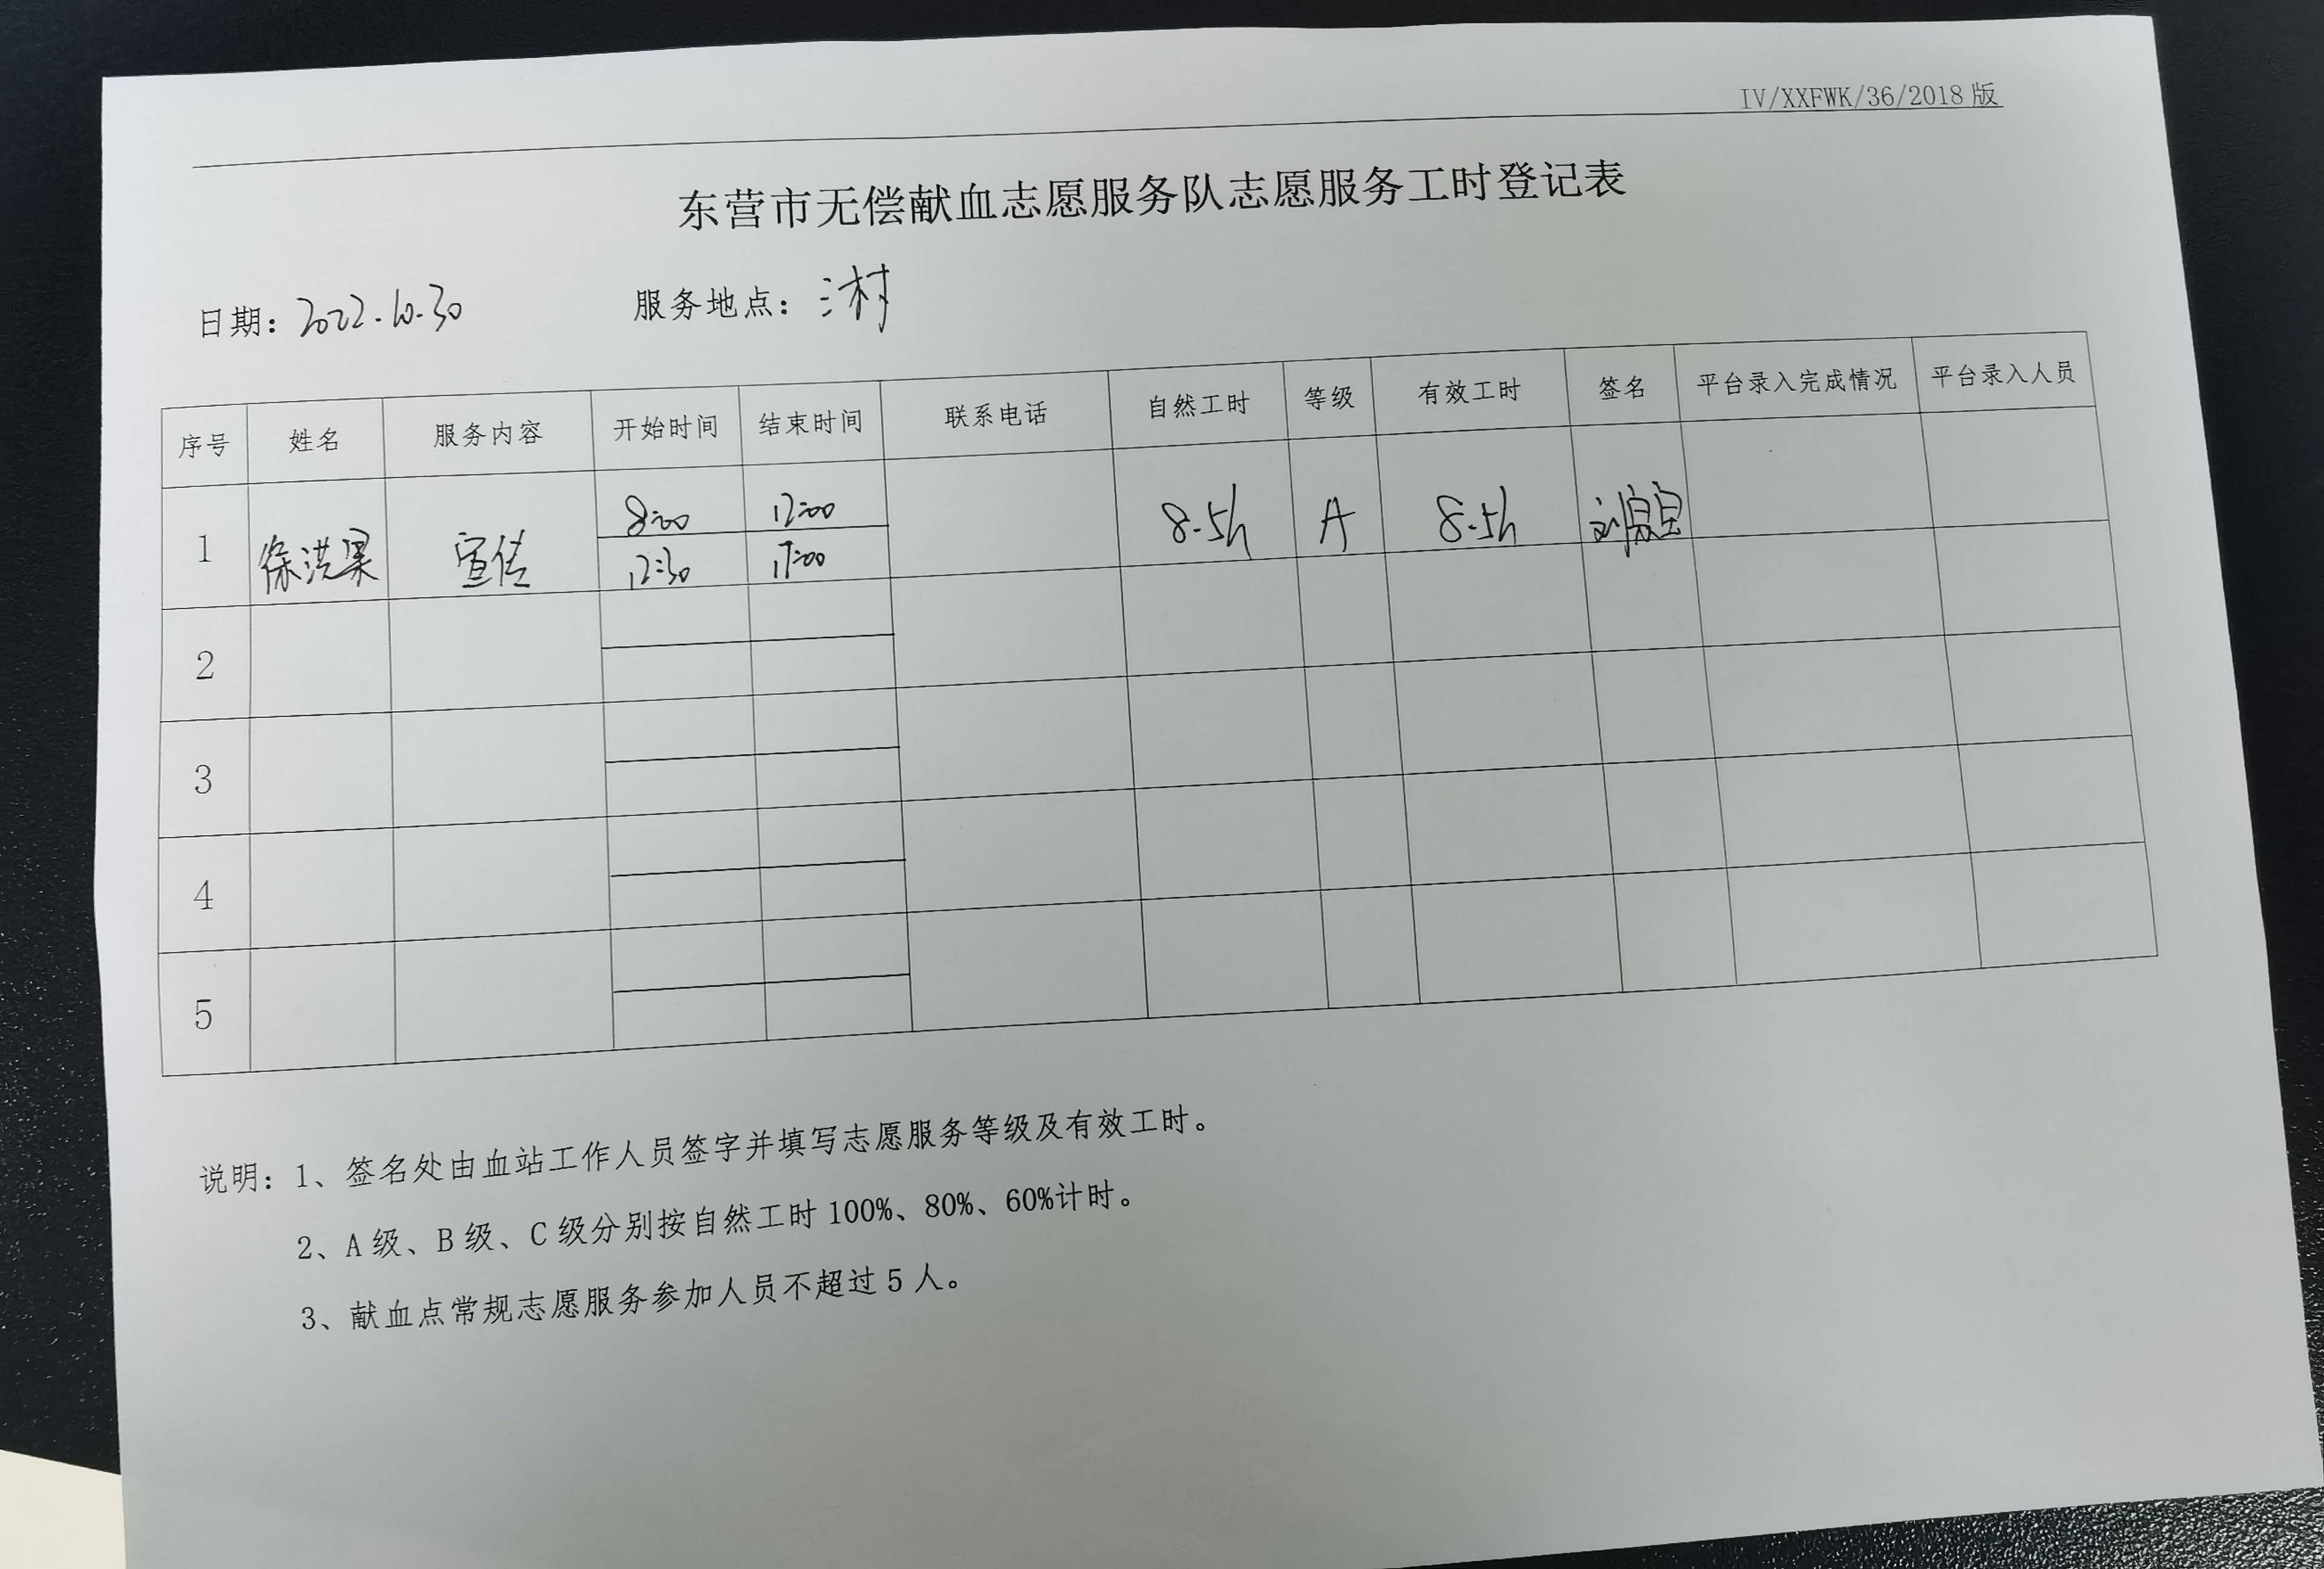 IV/XXFWK/36/2018版
东营市无偿献血志愿服务队志愿服务工时登记表
日期: 2022.10.30 服务地点: 三村
序号 姓名 服务内容 开始时间 结束时间 联系电话 自然工时 等级 有效工时 签名 平台录入完成情况 平台录入人员
8:00 12:00
1 徐洪果 宣传 8.5h A 8.5h
12:30 17:00
2
3
4
5
说明: 1、签名处由血站工作人员签字并填写志愿服务等级及有效工时。
2、A级、B级、C级分别按自然工时100%、80%、60%计时。
3、献血点常规志愿服务参加人员不超过5人。